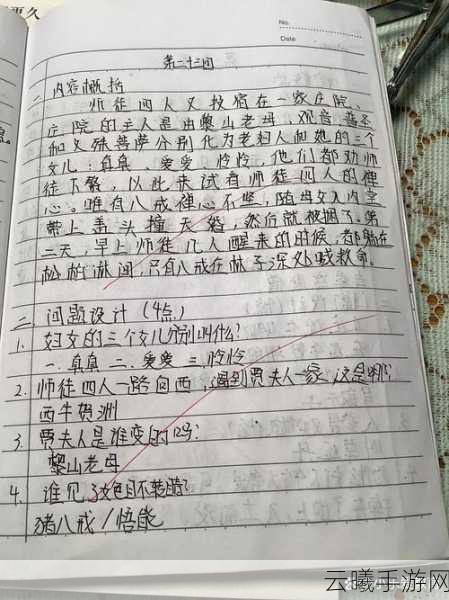 更久
No.
Date
第二十三回
一 内容概括
师徒四人又投宿在一家庄院、
庄院的主人是由黎山老母,观音 普圣
和文殊菩萨分别化为老妇人和她的三个
女儿:真真、爱爱、怜怜,他们都劝师
徒下繁,以此来试看师徒四人的禅
心。唯有八戒禅心不坚,随母女入内室
带上盖头撞天婚,然后就被捆了。第
二天,早上师徒几人醒来的时候,都躺在
松柏林间,只有八戒在林子深处喊救命。
二 问题设计(4点)
1. 妇女的三个女儿分别叫什么?
一.真真 二、爱爱 三.怜怜
2. 师徒四人一路向西,遇到贾夫人一家,这是哪?
西牛贺洲
3. 贾夫人是谁变的吗?
黎山老母
4. 谁见了女色目不转睛?
猪八戒/悟能
云曦手游网